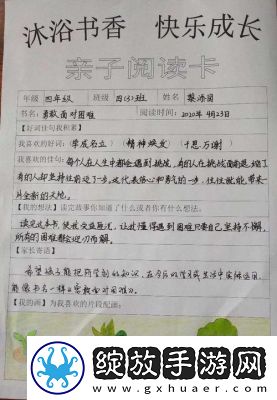 沐浴书香 快乐成长
亲子阅读卡
年级 四年级 班级 四(3)班 姓名
书名：勇敢面对困难 阅读时间：2020年4月23日
【好词佳句我积累】
我喜欢的好词：(学成名立) (精神焕发) (千恩万谢)
我喜欢的佳句：每个人在人生中都会遇到挑战，有的人在挑战面前退缩了
有的人却坚持往前迈了一步，这代表信心和勇气的一步，往往就能带来
片全新的天地。
【我的想法】读完故事你知道了什么或者你有什么想法。
读完这本书，使我受益匪浅，让我懂得遇到困难只要自己坚持不懈，
所有的困难都会迎刃而解。
【家长寄语】
希望孩子能把所学到的知识，在今后的学习或生活中实际运用，
能像书名一样《勇敢面对困难》。
【我的画】为我喜欢的片段配画：
绽放手游网
www.gxhuaer.com